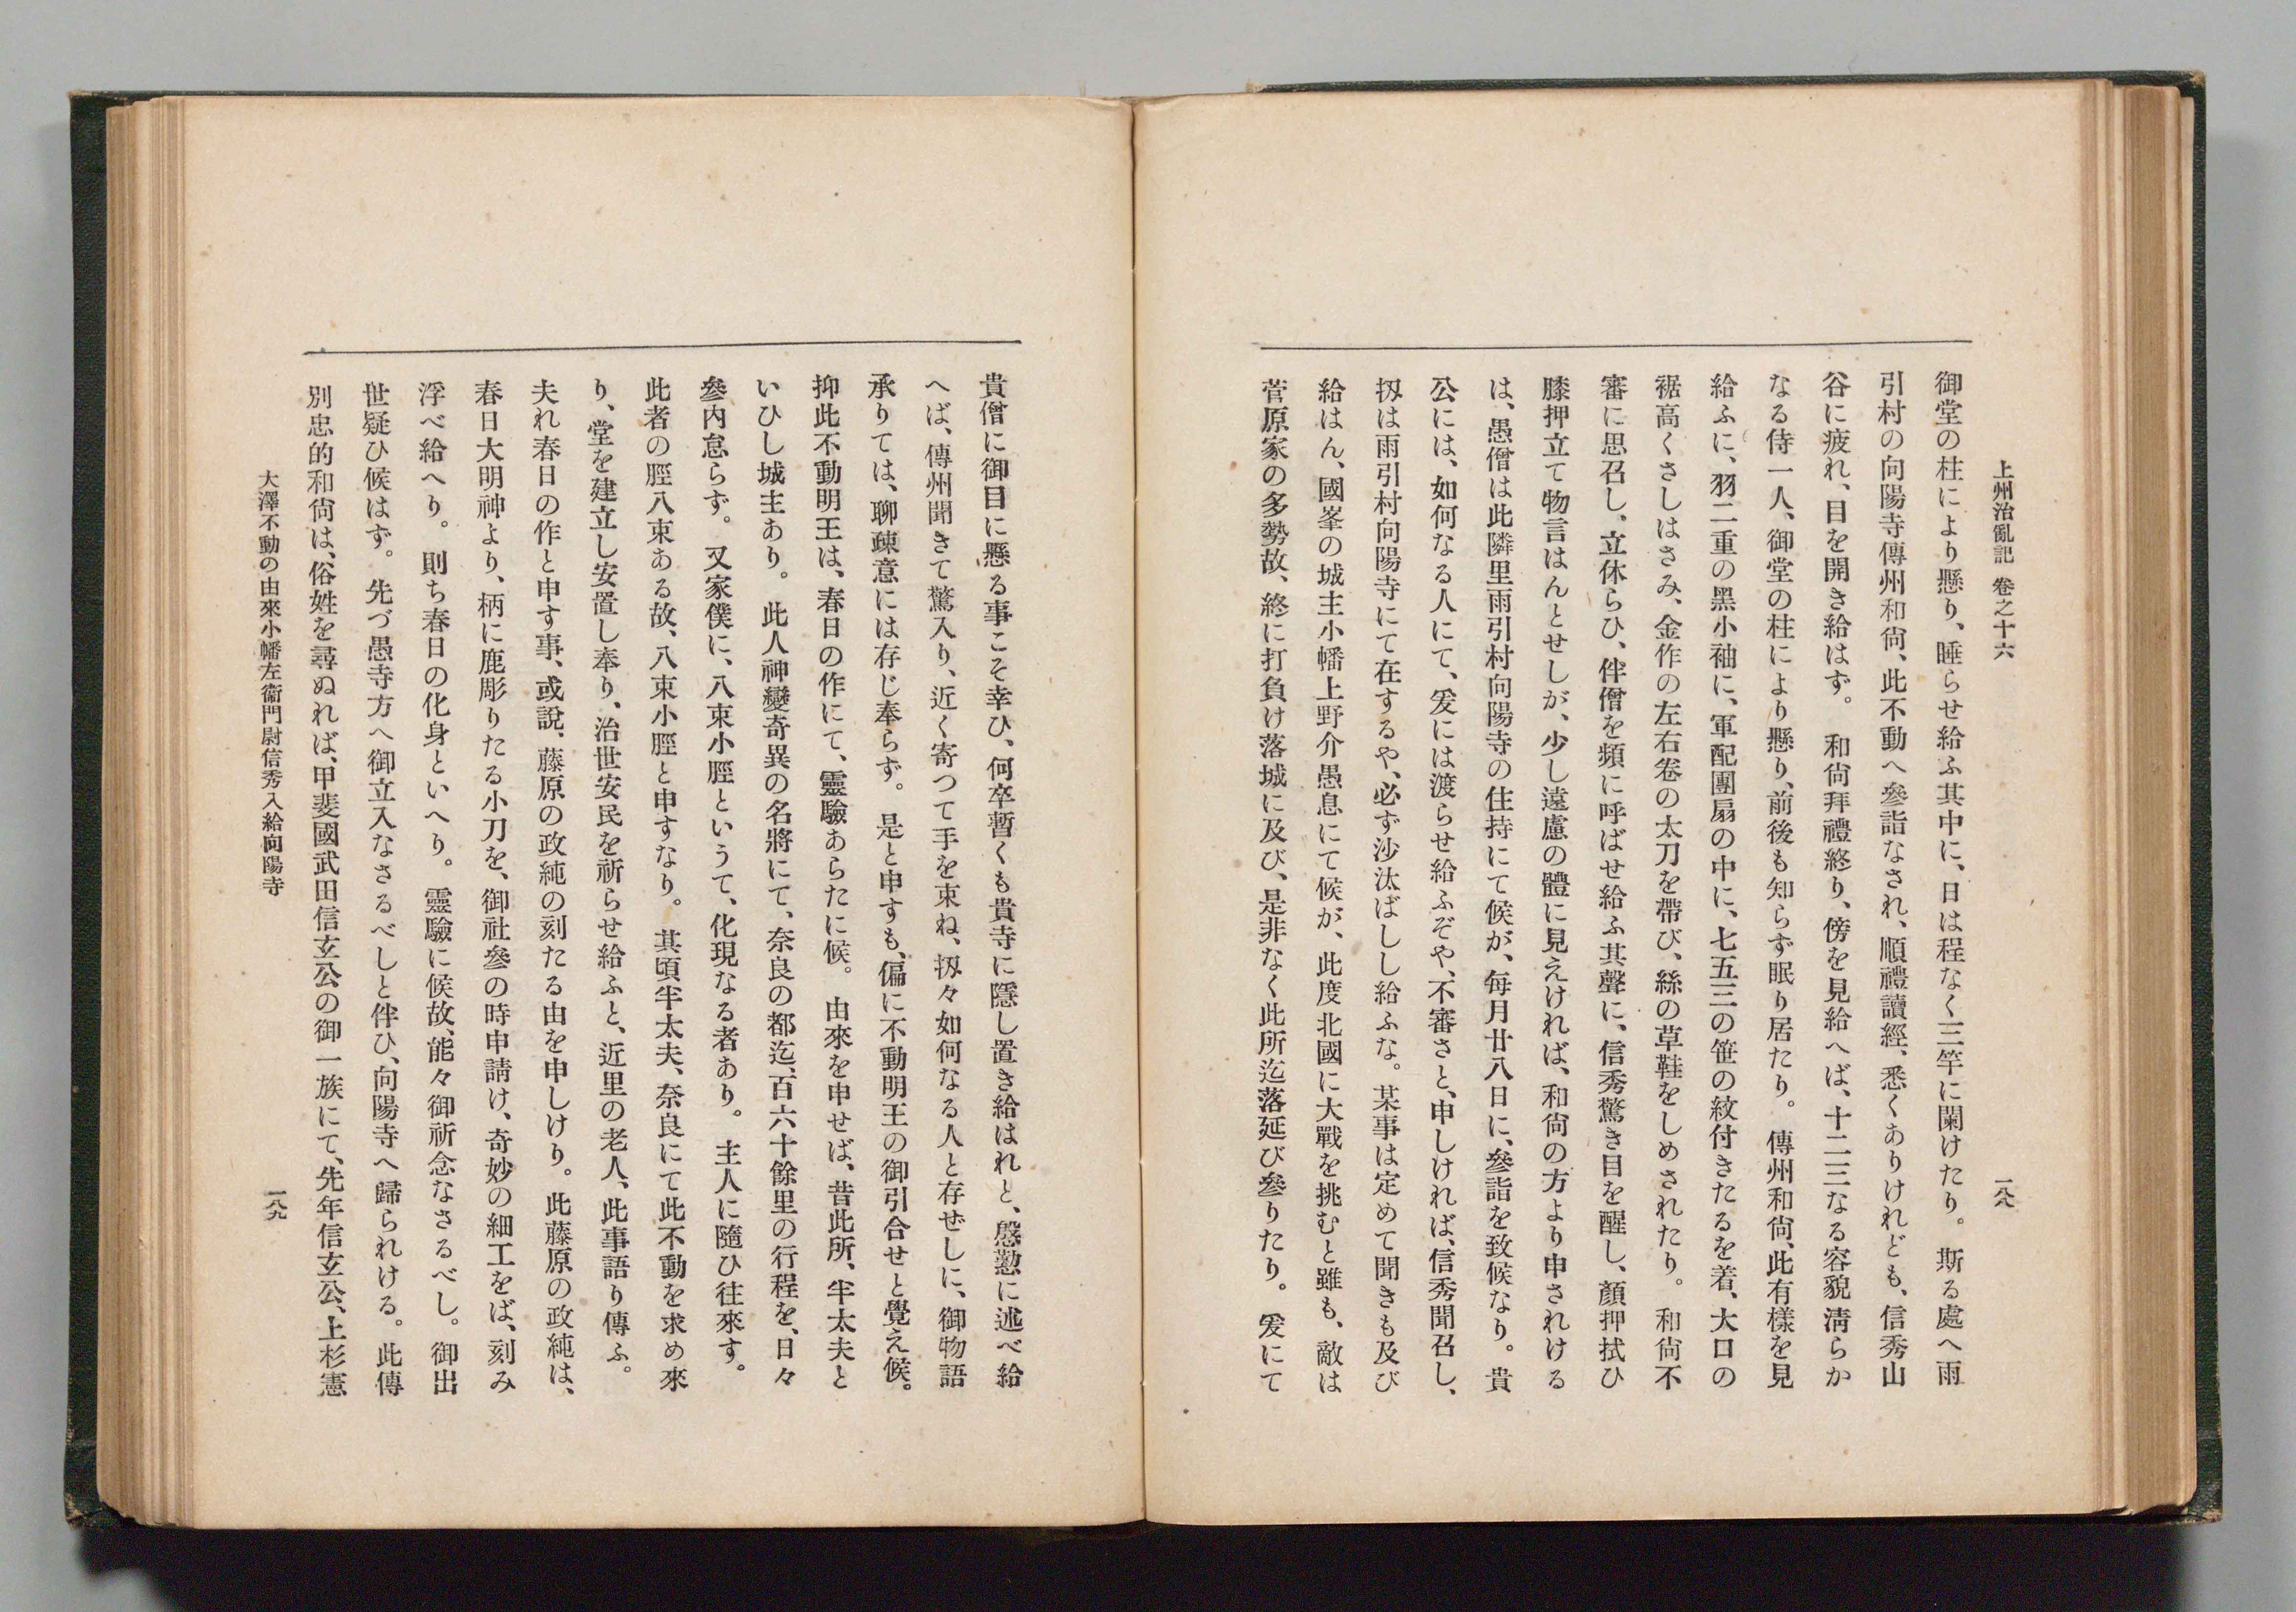 上州治亂記　卷之十六
一八八
御堂の柱により懸り、睡らせ給ふ其中に、日は程なく三竿に闌けたり。斯る處へ雨
引村の向陽寺傳州和尙、此不動へ參詣なされ、順禮讀經、悉くありけれども、信秀山
谷に疲れ、目を開き給はず。和尙拜禮終り、傍を見給へば、十二三なる容貌淸らか
なる侍一人、御堂の柱により懸り、前後も知らず眠り居たり。傳州和尙、此有樣を見
給ふに、羽二重の黑小袖に、軍配團扇の中に、七五三の笹の紋付きたるを着、大口の
裾高くさしはさみ、金作の左右卷の太刀を帶び、絲の草鞋をしめされたり。和尙不
審に思召し、立休らひ、伴僧を頻に呼ばせ給ふ其聲に、信秀驚き目を醒し、顏押拭ひ
膝押立て物言はんとせしが、少し遠慮の體に見えければ、和尙の方より申されける
は、愚僧は此隣里雨引村向陽寺の住持にて候が、每月廿八日に、參詣を致候なり。貴
公には、如何なる人にて、爰には渡らせ給ふぞや、不審さと、申しければ、信秀聞召し、
扨は雨引村向陽寺にて在するや、必ず沙汰ばしし給ふな。某事は定めて聞きも及び
給はん、國峯の城主小幡上野介愚息にて候が、此度北國に大戰を挑むと雖も、敵は
菅原家の多勢故、終に打負け落城に及び、是非なく此所迄落延び參りたり。爰にて
貴僧に御目に懸る事こそ幸ひ、何卒暫くも貴寺に隱し置き給はれと、慇懃に述べ給
へば、傳州聞きて驚入り、近く寄つて手を束ね、扨々如何なる人と存ぜしに、御物語
承りては、聊疎意には存じ奉らず。是と申すも、偏に不動明王の御引合せと覺え候。
抑此不動明王は、春日の作にて、靈驗あらたに候。由來を申せば、昔此所、半太夫と
いひし城主あり。此人神變奇異の名將にて、奈良の都迄、百六十餘里の行程を、日々
參內怠らず。又家僕に、八束小脛というて、化現なる者あり。主人に隨ひ往來す。
此者の脛八束ある故、八束小脛と申すなり。其頃半太夫、奈良にて此不動を求め來
り、堂を建立し安置し奉り、治世安民を祈らせ給ふと、近里の老人、此事語り傳ふ。
夫れ春日の作と申す事、或說、藤原の政純の刻たる由を申しけり。此藤原の政純は、
春日大明神より、柄に鹿彫りたる小刀を、御社參の時申請け、奇妙の細工をば、刻み
浮べ給へり。則ち春日の化身といへり。靈驗に候故、能々御祈念なさるべし。御出
世疑ひ候はず。先づ愚寺方へ御立入なさるべしと伴ひ、向陽寺へ歸られける。此傳
別忠的和尙は、俗姓を尋ぬれば、甲斐國武田信玄公の御一族にて、先年信玄公、上杉憲
大澤不動の由來小幡左衞門尉信秀入給向陽寺
一八九